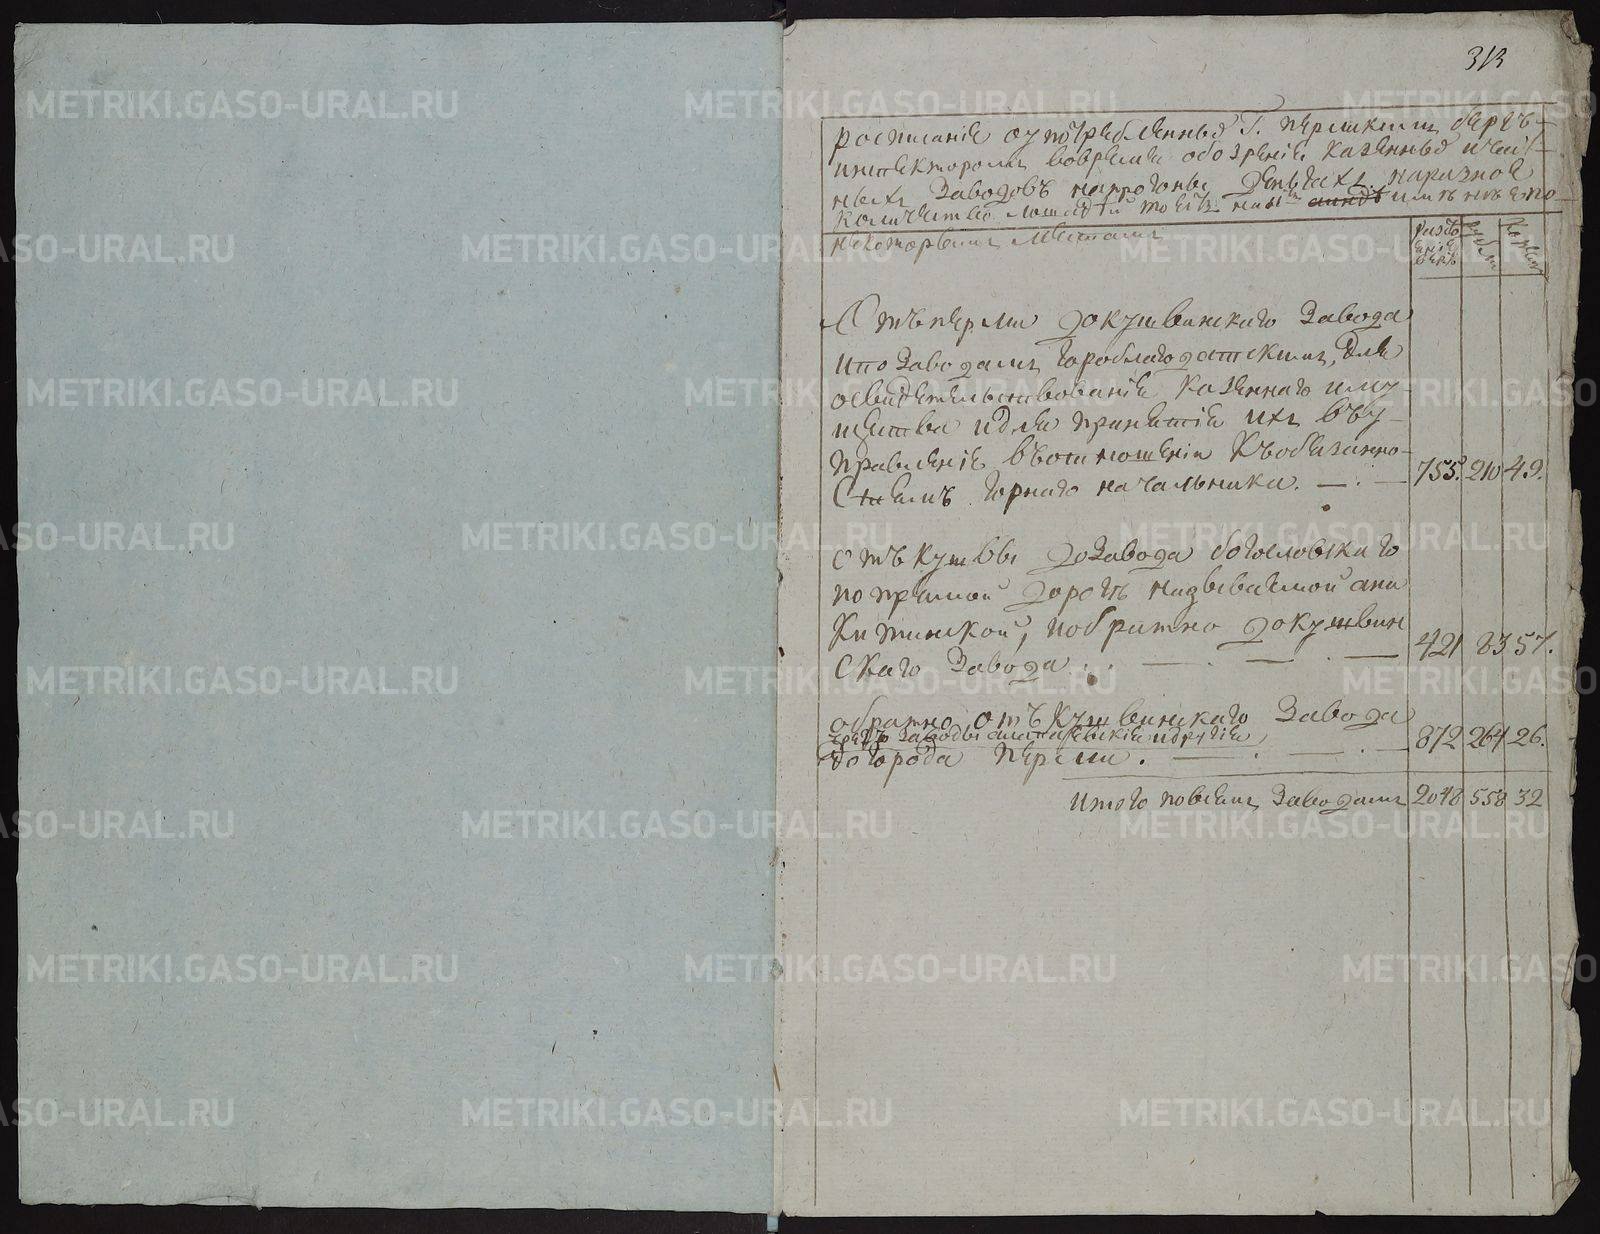 313
росписание оупотребленныхъ Г. пермскимъ бергъ-
инспекторомъ вовремя обозрения казенныхъ ичаст-
ныхъ Заводовъ напрогоны деньгахъ наразное
количество лошадей
понекоторымъ местамъ
разстояние верстъ
рубли
копейки
Отъ перми докушвинскаго Завода
ипо Заводамъ гороблагодатскимъ, для
освидетельствования казеннаго иму-
щества идля принятия ихъ въу-
правление въотношении Къобязанно-
Стямъ горнаго начальника. 755. 210 49.
отъ Кушвы доЗавода богословскаго
попрямой дороге называемой ани
Китинской, иобратно докушвин
скаго Завода 421 83 57.
обратно отъ Кушвинскаго Завода
чрезъ заводы алапаевские идругие
догорода перми. 872 264 26.
итого повсемъ Заводамъ 2048 558 32
METRIKI.GASO-URAL.RU